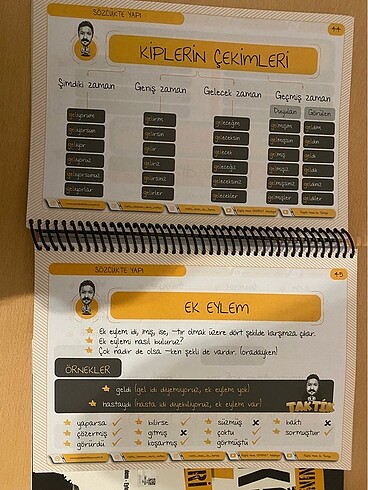 SÖZCÜKTE YAPI
44
KİPLERİN ÇEKİMLERİ
Şimdiki zaman
Geniş zaman
Gelecek zaman
Geçmiş zaman
Duyulan
Görülen
geliyorum
geliyorsun
geliyor
geliyoruz
geliyorsunuz
geliyorlar
gelirim
gelirsin
gelir
geliriz
gelirsiniz
gelirler
geleceğim
geleceksin
gelecek
geleceğiz
geleceksiniz
gelecekler
gelmişim
gelmişsin
gelmiş
gelmişiz
gelmişsiniz
gelmişler
geldim
geldin
geldi
geldik
geldiniz
geldiler
SÖZCÜKTE YAPI
45
EK EYLEM
Ek eylem idi, imiş, ise, -tır olmak üzere dört şekilde karşımıza çıkar.
Ek eylemi nasıl buluruz?
Çok nadir de olsa -ken şekli de vardır. (oradayken)
ÖRNEKLER
geldi (gel idi diyemiyoruz, ek eylem yok)
hastaydı (hasta idi diyebiliyoruz, ek eylem var)
TAKTİK
yaparsa ✓ bilirse süzmüş ✗ baktı ✗
çözermiş ✓ gitmiş ✗ çoktu ✓ sormuştur ✓
görürdü ✓ koşarmış ✓ görmüştü ✓